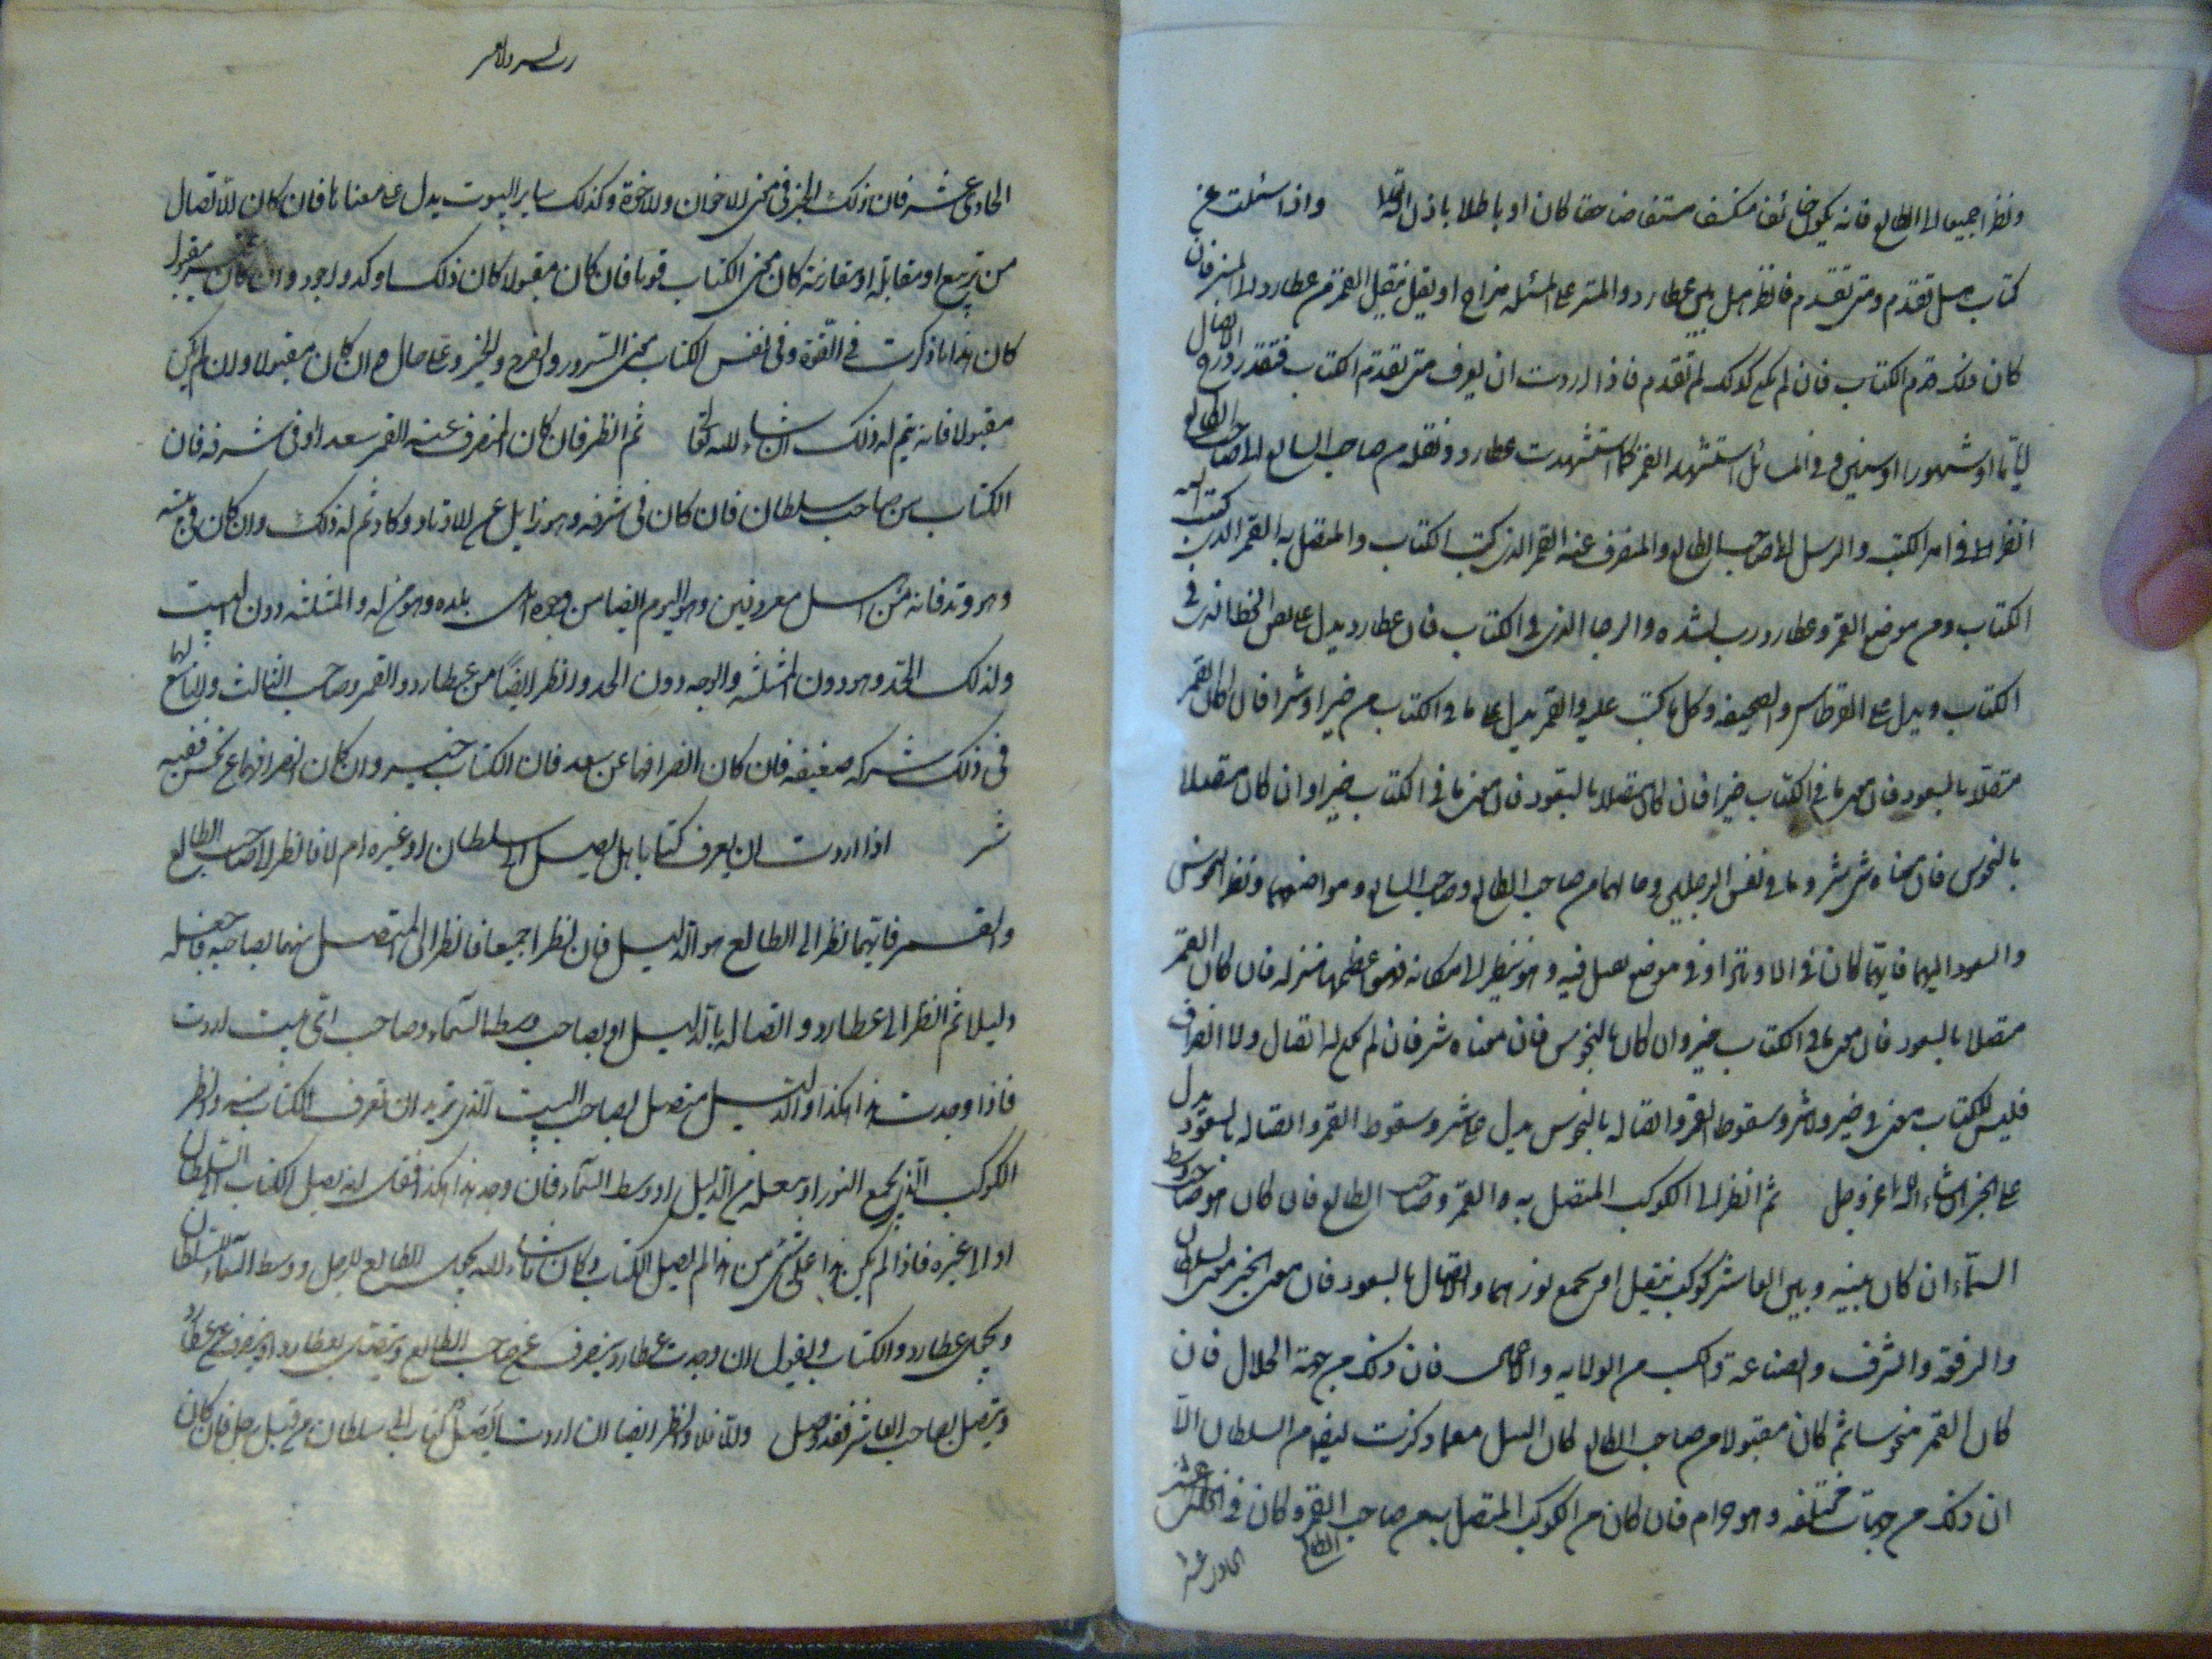 ونظرا جميعا الى الطالع فانه يكون مستفاضا حقا كان او باطلا باذن الله واذا سئلت عن
كتاب هل تقدم ومتى تقدم فانظر هل بين عطارد والمشترى او نقل القمر من عطارد الى المشترى فان
كان ذلك قدم الكتاب فان لم يكن كذلك لم تقدم فاذا اردت ان يعرف متى تقدمة الكتاب فقدر درج الاتصال
اياما او شهورا او سنين وفى المسائل استشهد القمر كما استشهدت عطارد ونقله من صاحب السابع الى صاحب الطالع
انظر فى امر الكتب والرسل الى صاحب الطالع والمنصرف عنه القمر الذى كتب الكتاب والمتصل به القمر الذى كتب اليه
الكتاب ومن موضع القمر وعطارد والرجا الذى فى الكتاب فان عطارد يدل على الخط الذى فى
الكتاب ويدل على القرطاس والصحيفه وكل ما كتب عليه والقمر يدل على ما فى الكتاب من خير او شر فان كان القمر
متصلا بالسعود فان معنى ما فى الكتاب خير فان كان متصلا بالسعود فان معنى ما فى الكتاب خيرا وان كان متصلا
بالنحوس فان معناه شر وما فى نفس الرجلين وحالهما من صاحب الطالع وصاحب السابع ومواضعهما ونظر النحوس
والسعود اليهما فايهما كان فى الاوتاد او فى موضع يصل فيه وهو ينظر الى مكانه فهو اعظمهما منزله فان كان القمر
متصلا بالسعود فان معنى ما فى الكتاب خير وان كان بالنحوس فان معناه شر فان لم يكن له اتصال ولا انصراف
فليس للكتاب معنى فى خير ولا شر وسقوط القمر واتصاله بالنحوس يدل على شر وسقوط القمر واتصاله بالسعود يدل
على الخير ان شاء الله عز وجل ثم انظر الى الكوكب المتصل به والقمر وصاحب الطالع فان كان هو صاحب وسط
السماء ان كان بينه وبين العاشر كوكب ينقل او يجمع نورهما والاتصال بالسعود فان معنى الخير معنى السلطان
والرفعة والشرف والصناعة والكسب من الولايه فان ذلك من جهة الحلال فان
كان القمر منحوسا ثم كان مقبولا من صاحب الطالع كان السبيل معما ذكرت ايضا من السلطان الا
ان ذلك من جهات مختلفه وهو حرام فان كان من الكوكب المتصل به من صاحب القمر وكان فى الحادى عشر
الطالع
الحادى عشر
الحادى عشر فان ذلك الخبر فى معنى الاخوان والاخوة وكذلك ساير البيوت يدل على معناها فان كان الاتصال
من تربيع او مقابلة او مقارنة كان معنى الكتاب قويا فان كان مقبولا كان ذلك اوكد واجود وان كان غير مقبول
كان هذا ما ذكرت فى القوة وفى نفس الكتاب معنى السرور والفرح والخير وعلى حال ان كان مقبولا وان لم يكن
مقبولا فانه يتم له ذلك ان شاء الله تعالى ثم انظر فان كان المنصرف عنه القمر سعدا او فى شرفه فان
الكتاب من صاحب سلطان فان كان فى شرفه وهو زايل عن الاوتاد وكاد ثم له ذلك وان كان فى بيته
وهو وتد فانه من اهل معروفين وهو اليوم ايضا من وجوه اهل بلده وهو عز له والمثلثه دون البيت
ولذلك الحد وهو دون المثلثه والوجه دون الحد وانظر ايضا من عطارد والقمر وصاحب الثالث والتاسع لهما
فى ذلك شركه ضعيفه فان كان انصرافهما عن سعد فان الكتاب خير وان كان انصرافهما عن نحس ففيه
شر اذا اردت ان يعرف كتابا هل يصل الى سلطان او غيره ام لا فانظر الى صاحب الطالع
والقمر فايهما نظر الى الطالع هو الدليل فان نظرا جميعا فانظر الى المتصل منهما بصاحبه فاجعله
دليلا ثم انظر الى عطارد واتصاله بالدليل او بصاحب وسط السماء وصاحب اى بيت اردت
فاذا وجدت هذا هكذا والدليل متصل بصاحب البيت الذى تريد ان تعرف الكتاب منه وانظر
الكوكب الذى يجمع النور او ينقله من الدليل او وسط السماء فان وجد هذا هكذا فقل انه يصل الكتاب الى السلطان
او الى غيره فاذا لم يكن هذا على شئ من هذا لم يصل الكتاب وكان ما شاء الله يجعل الطالع للرجل ووسط السماء للسلطان
ويجعل عطارد والكتاب ويقول ان وجدت عطارد ينصرف عن صاحب الطالع ويتصل بعطارد او ينصرف عن عطارد
ويتصل بصاحب العاشر فقد وصل والا فلا وانظر ايضا ان اردت ايصل كتاب الى سلطان من قبل رجل فان كان